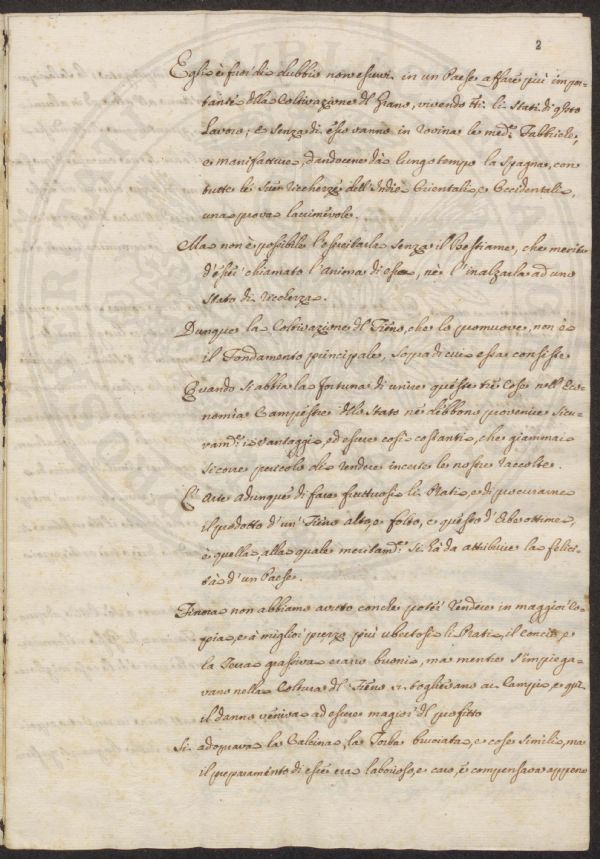 2
Egli è fuori di dubbio non esservi in un Paese affare più impor-
tante dlla Coltivazione dl Grano, vivendo tti. li Stati di qsto
Lavoro; e senza di esso vanno in rovina le med.e Fabbriche,
e manifatture, dandocene dà lungo tempo la Spagna, con
tutte le sue ricchezze dell'Indie Orientali, e Occidentali,
una prova lacrimevole.
Ma non è possibile l'esercitarla senza il Bestiame, che merita
d'esser chiamato l'anima di essa, nè l'inalzarla ad uno
stato di
Dunque la Coltivazione dl Fieno, che lo promuove, non è
il Fondamento principale, sopra di cui essa consiste
Quando si abbia la fortuna di unire queste trè Cose nell'Eco-
nomia Campestre dllo Stato ne debbono provenire sicu-
ram.te i vantaggi, ed essere così costanti, che giammai
si corre pericolo di rendere incerte le nostre raccolte.
L'Arte adunque di fare fruttuosi li Prati, e di procurarne
il prodotto d'un Fieno alto, e folto, e questo d'Erbe ottime,
è quella, alla quale meritam.te si hà da attribuire la felici-
tà d'un Paese.
Finora non abbiamo avuto con che poter rendere in maggior Co-
pia, e à miglior prezzo più ubertosi li Prati, il concio, e
la Terra grassa erano buoni, ma mentre s'impiega-
vano nella Coltura dl Fieno si toglievano ai Campi, e qui
il danno veniva ad essere magior dl profitto
Si adoprava la Calcina, la Torba bruciata, e cose simili, ma
il preparamento di esse era laborioso, e caro, e compensava appena